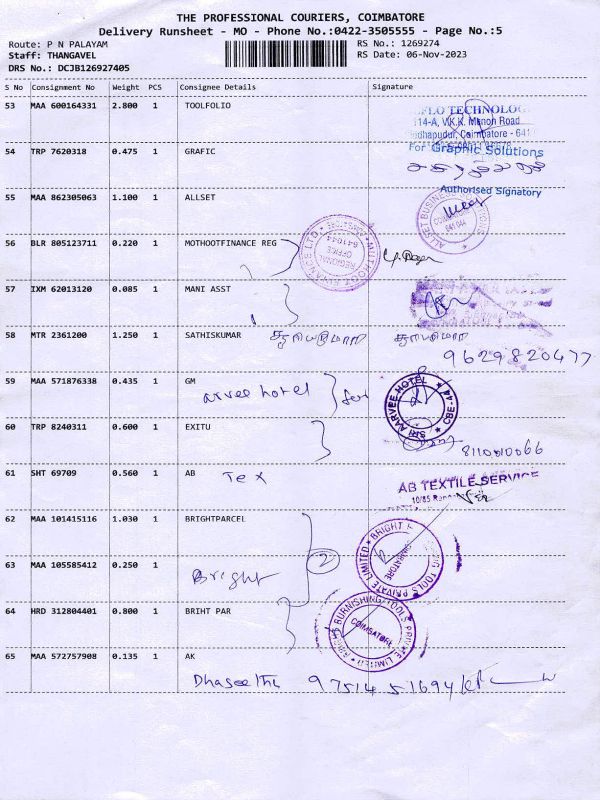 THE PROFESSIONAL COURIERS, COIMBATORE
Delivery Runsheet - MO - Phone No.:0422-3505555 - Page No.:5
Route: P N PALAYAM
RS No.: 1269274
Staff: THANGAVEL
RS Date: 06-Nov-2023
DRS No.: DCJB126927405
S No Consignment No Weight PCS Consignee Details Signature
53 MAA 600164331 2.800 1 TOOLFOLIO
FLO TECHNOLOG
114-A, V.K.K. Menon Road
Coimbatore - 641
54 TRP 7620318 0.475 1 GRAFIC
For Graphic Solutions
Authorised Signatory
55 MAA 862305063 1.100 1 ALLSET
ALLSET BUSINESS SOLUTIONS
641 044
56 BLR 805123711 0.220 1 MOTHOOTFINANCE REG
REGIONAL OFFICE
641044
57 IXM 62013120 0.085 1 MANI ASST
58 MTR 2361200 1.250 1 SATHISKUMAR
9629820477
59 MAA 571876338 0.435 1 GM
arvee hotel
SRI AARVEE HOTEL
CBE-44
60 TRP 8240311 0.600 1 EXITU
61 SHT 69709 0.560 1 AB
Tex
AB TEXTILE SERVICE
10/85
62 MAA 101415116 1.030 1 BRIGHTPARCEL
2
63 MAA 105585412 0.250 1
Bright
BRIGHT
TOOLS PRIVATE LIMITED
COIMBATORE
64 HRD 312804401 0.800 1 BRIHT PAR
BURNISHING TOOLS PRIVATE LIMITED
COIMBATORE
65 MAA 572757908 0.135 1 AK